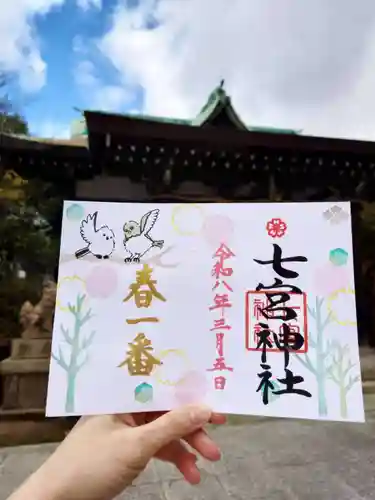 七宮神社
令和八年三月五日
春一番